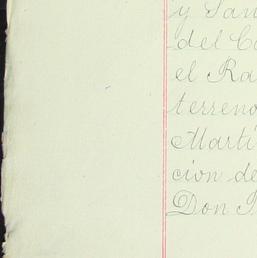 y San
del C
el Ra
terreno
Martí
cion de
Don